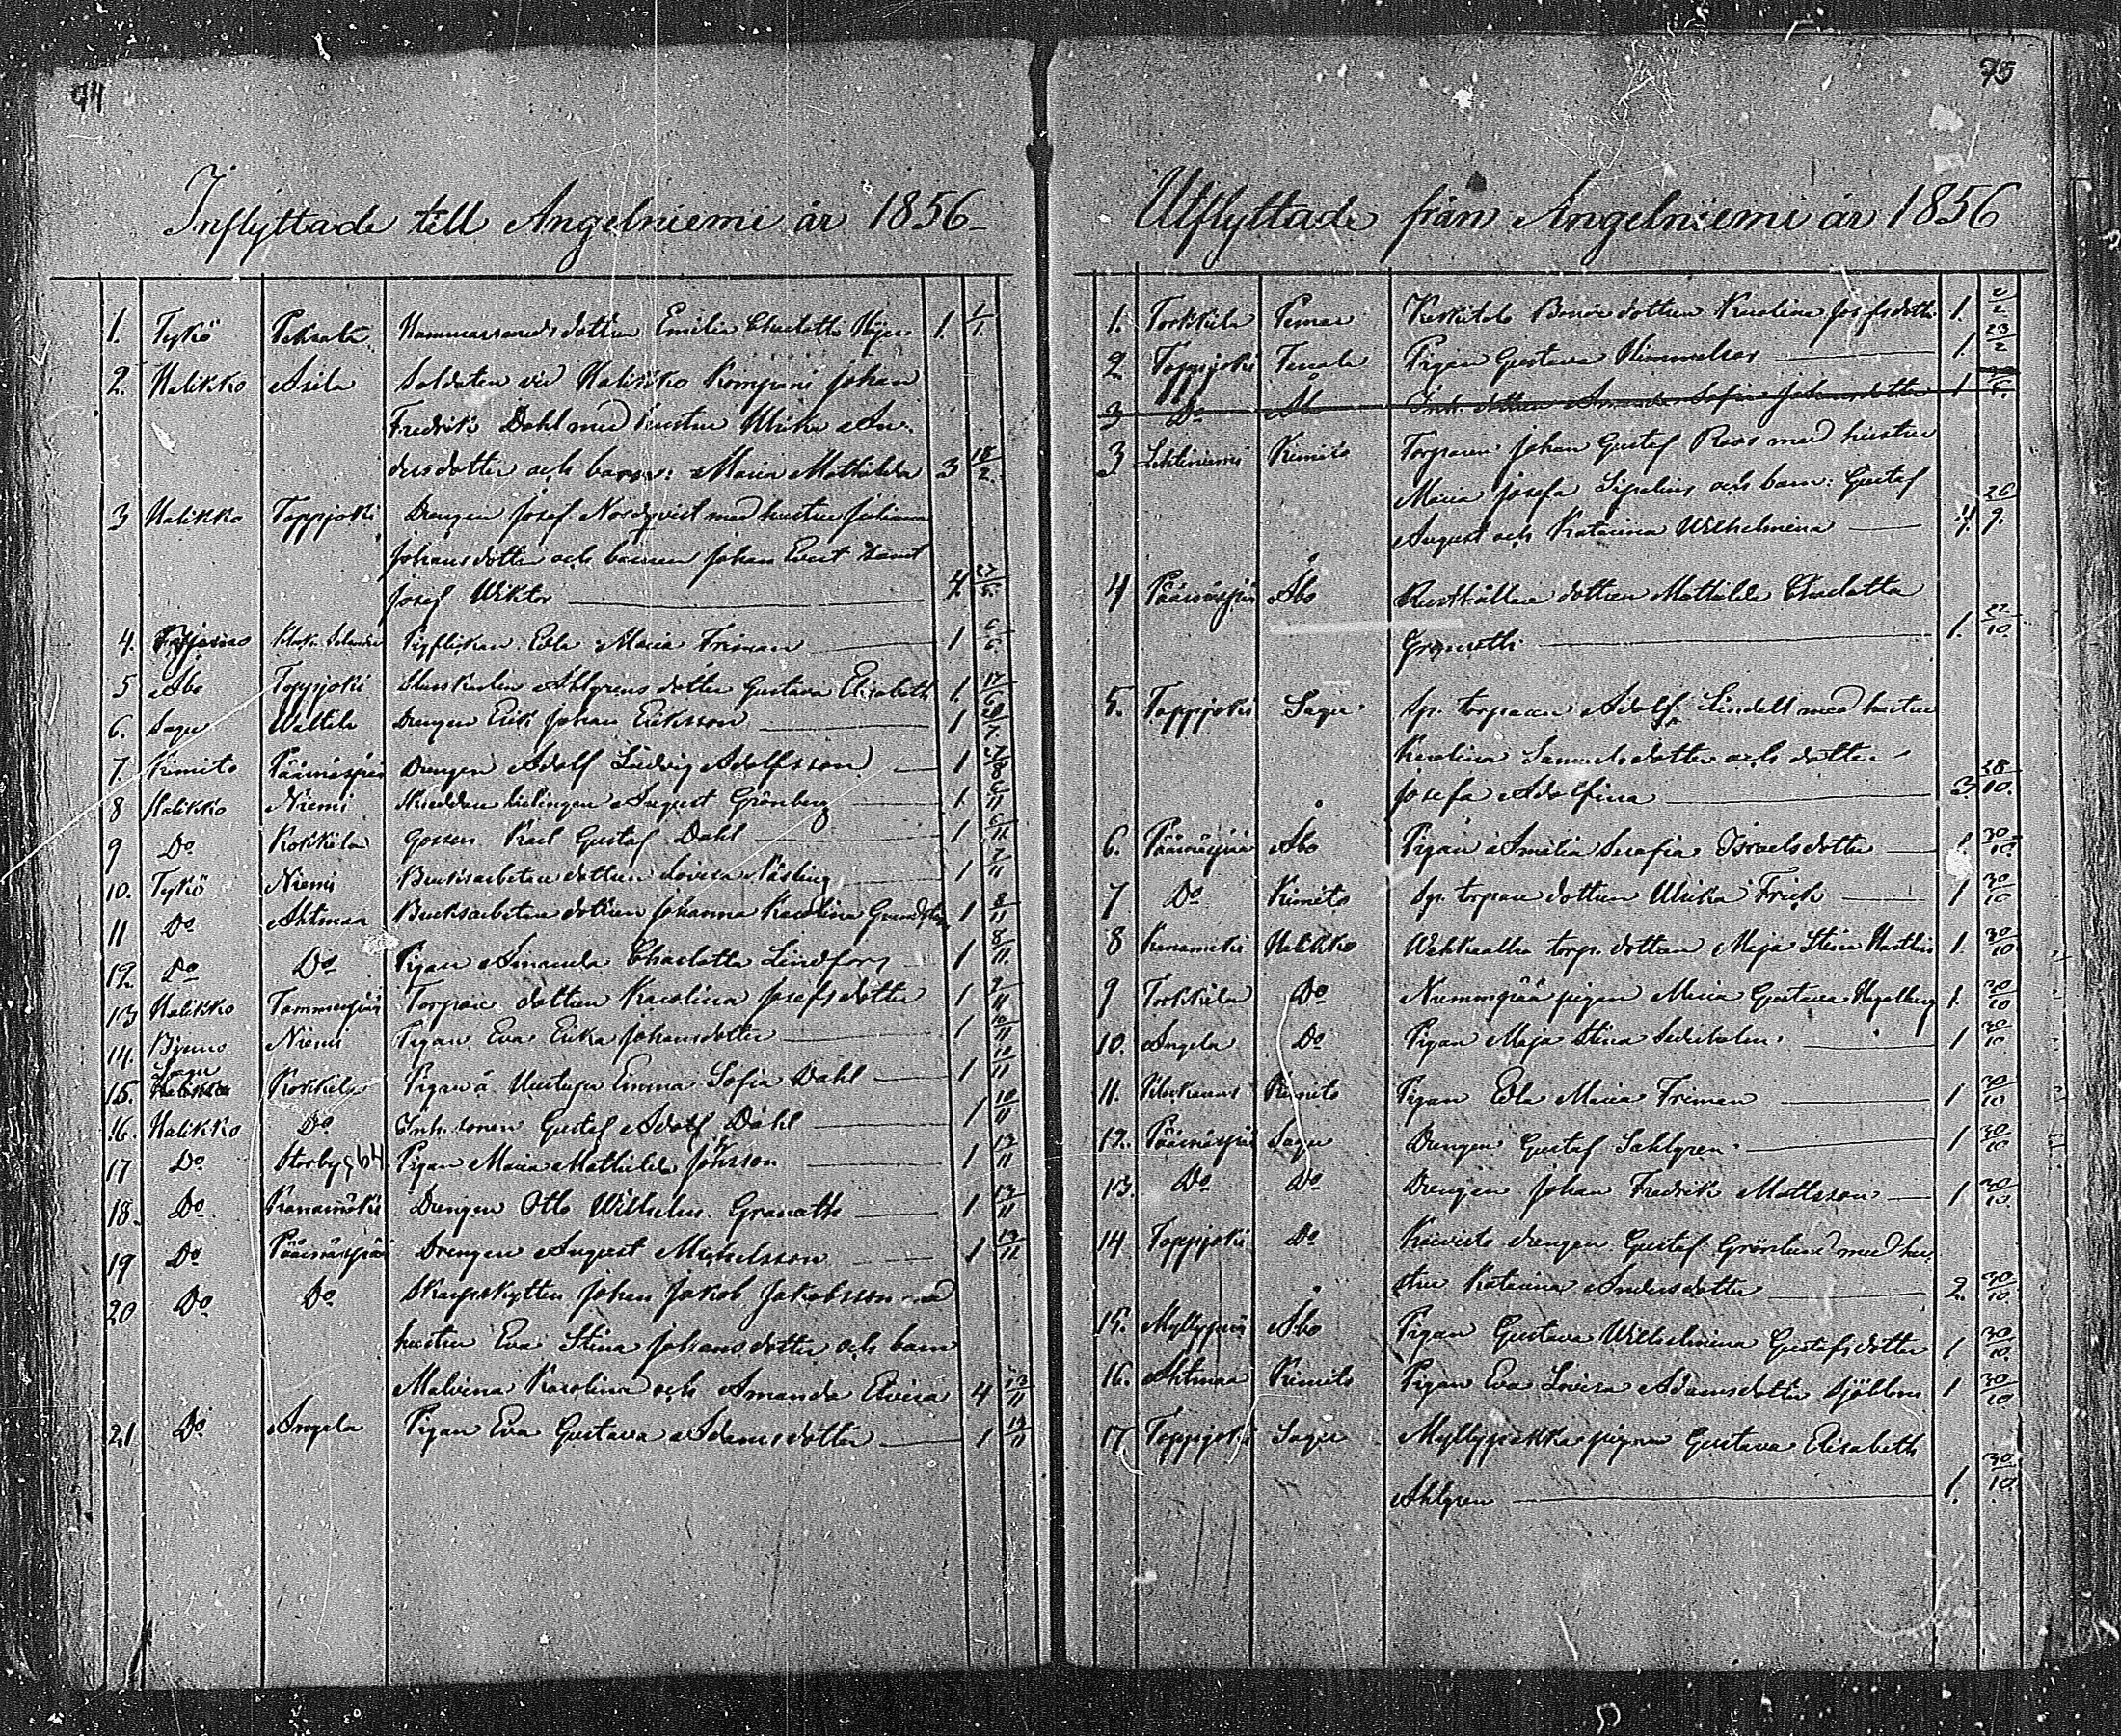 74
Inflyttade till Angelniemi år 1856
1. Tykö Peksala Hammarsmeds dottren Emilia Charlotta 1. 1/1.
2. Halikko Asila Soldaten vid Halikko Kompani Johan
Fredrik Dahl med hustru Ulrika An-
dersdotter och barn: Maria Mathilda 3 18/2.
3 Halikko Toppjoki Drengen Josef Nordqvist med hustru Juliana
Johansdotter och barnen Johan Evert samt
Josef Wiktor 4. 27/5.
4. Pigflickan Edla Maria Friman 1 6/6.
5 Åbo Toppjoki Ahlgrens dotter Gustava Elisabeth 1. 17/6.
6. Sagu Waltila Drengen Erik Johan Eriksson 1
7. Kimito Päärnäspää Drengen Adolf Ludvig Adolfsson 1
8 Halikko Niemi Skreddare lärlingen August Grönberg 1 6/11
9 Do Kokkila Gossen Karl Gustaf Dahl 1 6/11
10. Tykö Niemi Bruksarbetare dottren Lovisa Näsling 1 7/11
11 Do Ahtmaa Bruksarbetare dottren Johanna Karolina 1 8/11
12. Do Do Pigan Amanda Charlotta Lindfors 1 8/11.
13 Halikko Tammenpää Torpare dottren Karolina Josefsdotter 1 9/11
14. Bjerno Niemi Pigan Eva Erika Johansdotter 1 10/11
Sagu
15. Halikko Kokkila Pigan Emma Sofia Dahl 1 10/11
16. Halikko Do Inh. sonen Gustaf Adolf Dahl 1 10/11
17 Do Storby Pigan Maria Mathilda Johnsson 1 13/11
18. Do Kanamäki Drengen Otto Wilhelm Granroth 1 13/11
19 Do Päärnäspää Drengen August Mickelsson 1 13/11
20 Do Do Skarpskytten Johan Jakob Jakobsson med
hustru Eva Stina Johansdotter och barn
Malvina Karolina och Amanda Elvira 4 13/11
21 Do Angela Pigan Eva Gustava Adamsdotter 1 13/11
75
Utflyttade från Angelniemi år 1856
1. Torkkila Pemar dottren Karolina Josefsdotter 1. 2/2.
2. Toppjoki Tenala Pigan Gustava Himmelroos 1. 23/2
3 Do Åbo Inh. dottren Amanda Sofia Johansdotter 1
3 Lehtiniemi Kimito Torparen Johan Gustaf Roos med hustru
Maria Josefa Sipelius och barn: Gustaf
August och Katarina Wilhelmina 4. 26/9.
4 Päärnäspää Åbo Rusthållare dottren Mathilda Charlotta
Granroth 1. 22/10
5. Toppjoki Sagu Sp. torparen Adolf Lindell med hustru
Karolina Samuelsdotter och dotter
Josefa Adolfina 3. 28/10.
6. Päärnäspää Åbo Pigan Amalia Serafia Israelsdotter 1 30/10.
7 Do Kimito Sp. torpare dottren Ulrika Frisk 1 30/10
8 Kanamäki Halikko torp. dottren Maja Stina 1. 30/10
9 Torkkila Do pigan Maria Gustava Hagelberg 1. 30/10
10. Angela Do Pigan Maja Stina Sederholm 1 30/10
11. Kimito Pigan Edla Maria Friman 1 30/10
12. Päärnäspää Sagu Drengen Gustaf Sahlgren 1 30/10
13. Do Do Drengen Johan Fredrik Mattsson 1 30/10.
14 Toppjoki Do Koivisto drengen Gustaf Grönlund med hu-
stru Katarina Andersdotter 2. 30/10.
15. Myllypää Åbo Pigan Gustava Wilhelmina Gustafsdotter 1 30/10.
16. Ahtmaa Kimito Pigan Eva Lovisa Adamsdotter Sjöblom 1 30/10
17 Toppjoki Sagu pigan Gustava Elisabeth
Ahlgren 1. 30/10.